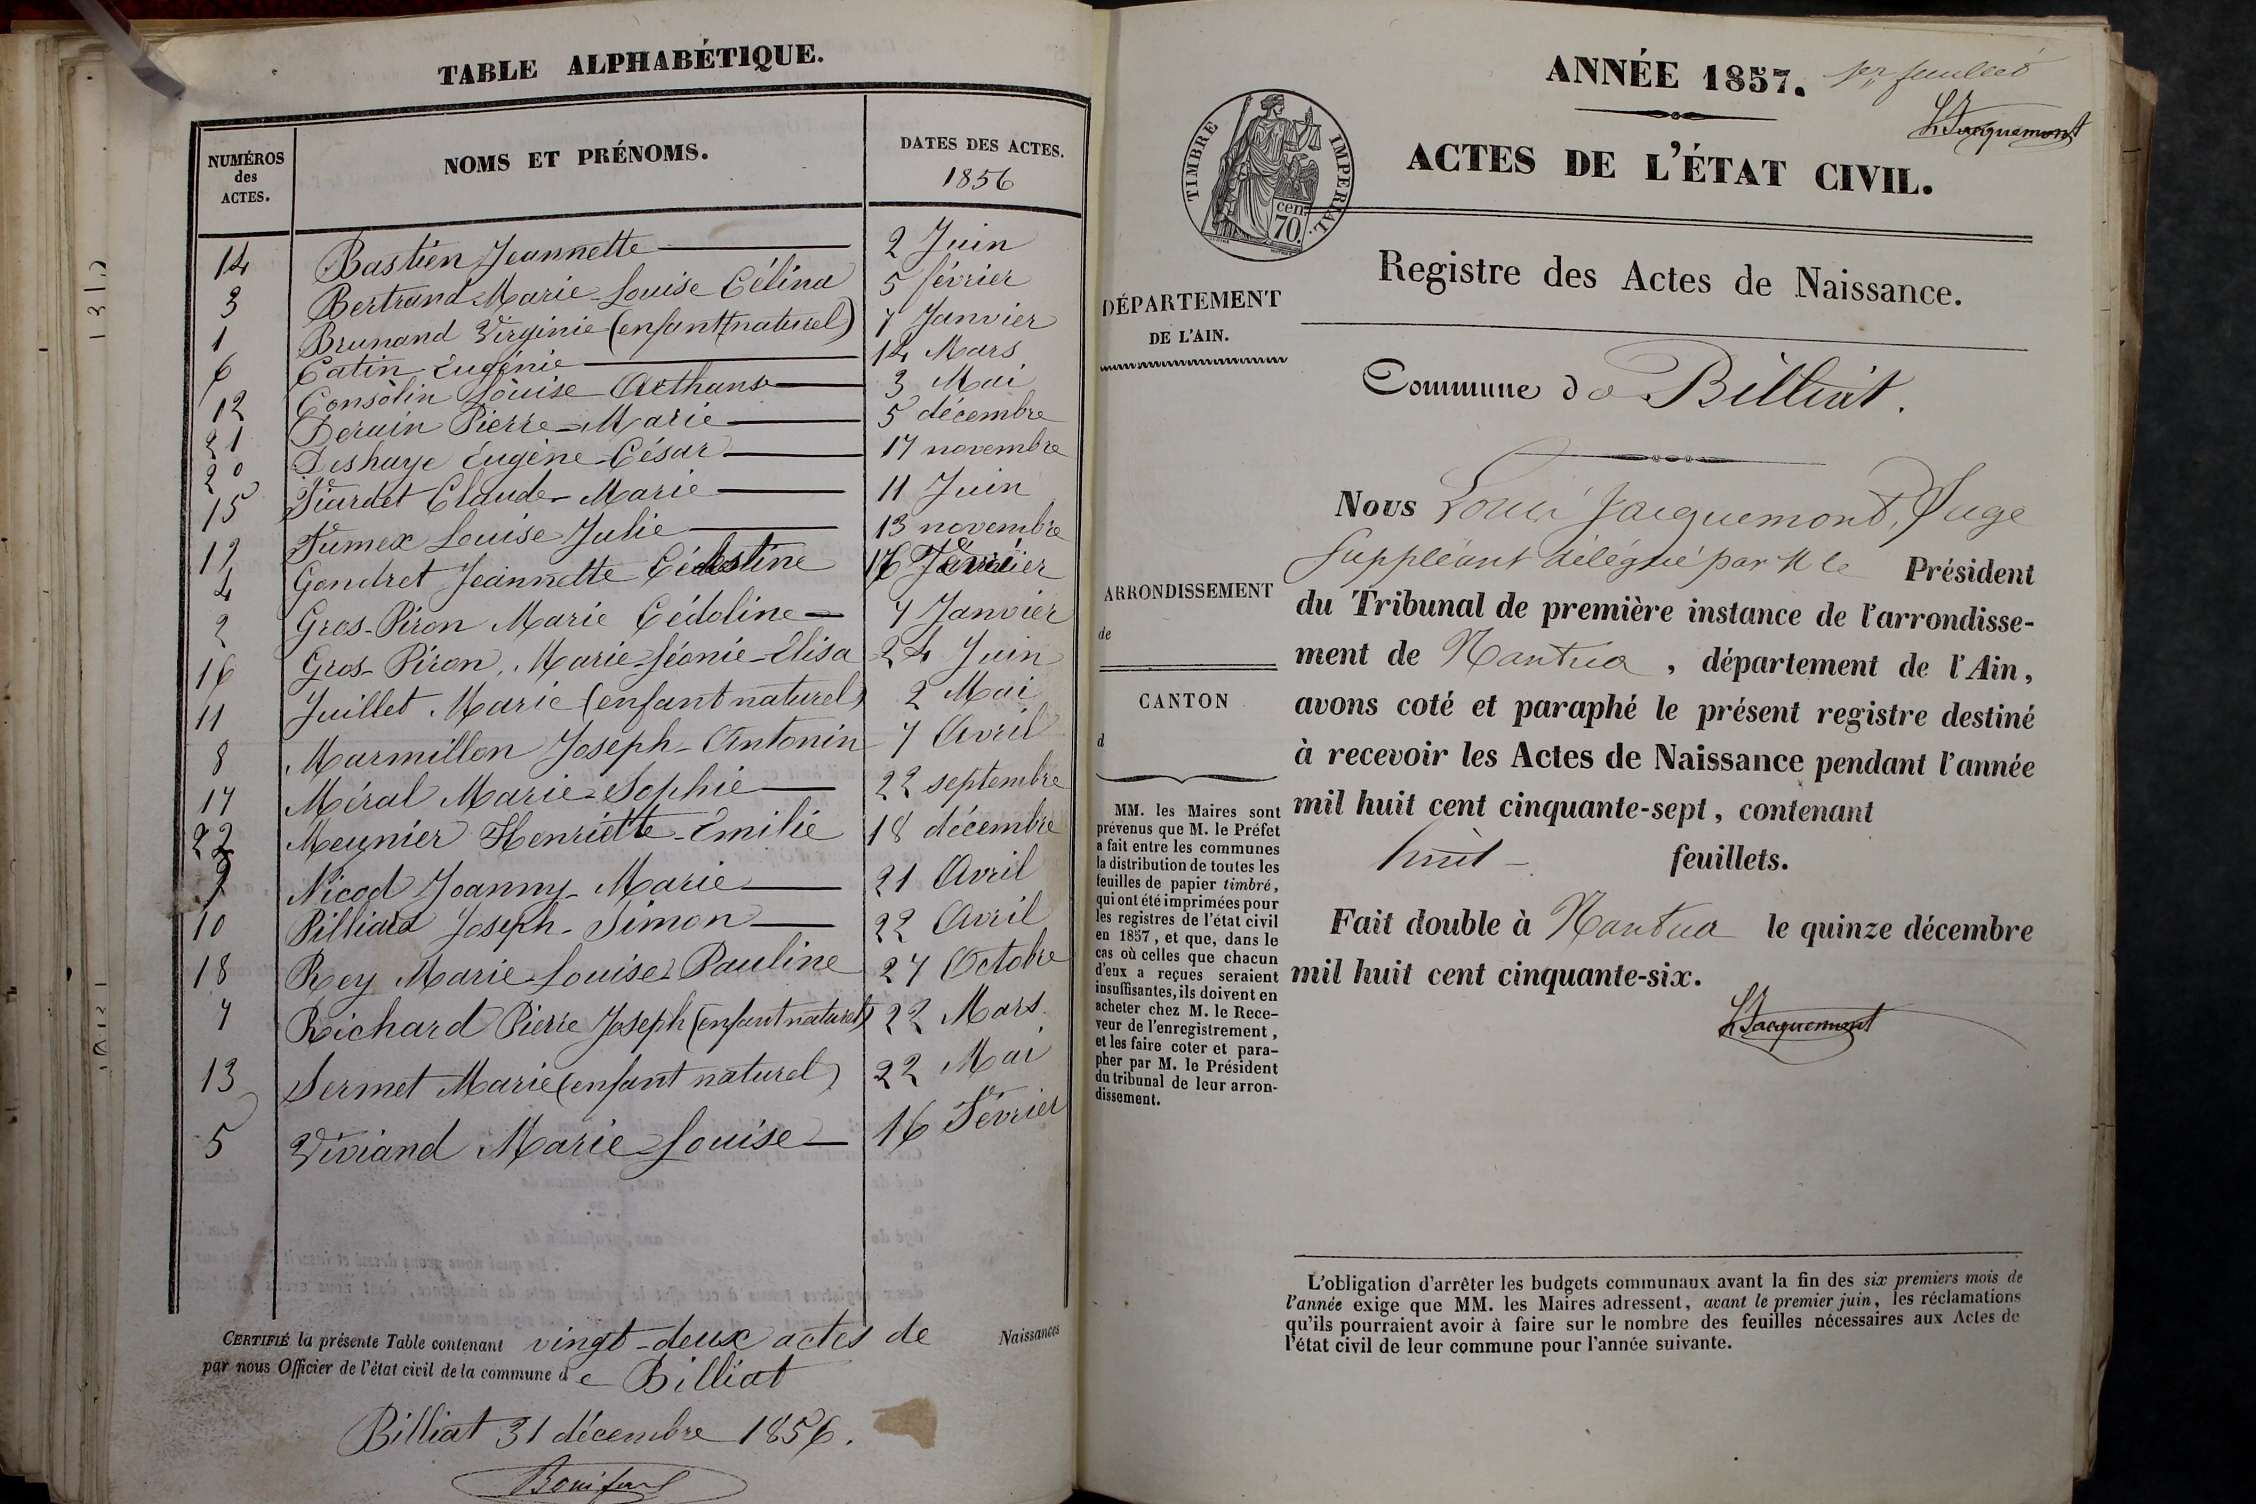 TABLE ALPHABÉTIQUE.
NUMÉROS des ACTES.
NOMS ET PRÉNOMS.
DATES DES ACTES.
1856
14 Bastien Jeannette 2 Juin
3 Bertrand Marie-Louise Célina 5 février
1 Brunand Virginie (enfant naturel) 7 Janvier
6 Catin Eugénie 14 Mars
12 Consolin Louise 3 Mai
21 Derain Pierre-Marie 5 décembre
20 Deshaye Eugène-César 17 novembre
15 Fiardet Claude-Marie 11 Juin
19 Fumex Louise Julie 13 novembre
4 Gondret Jeannette Célestine
2 Gros-Piron Marie 7 Janvier
16 Gros-Piron, Marie-Léonie-Elisa 24 Juin
11 Juillet Marie (enfant naturel) 2 Mai
8 Marmillon Joseph-Antonin 7 Avril
17 Méral Marie-Sophie 22 septembre
22 Meunier Henriette-Emilie 18 décembre
9 Nicod Joanny-Marie 21 Avril
10 Pilliard Joseph-Simon 22 Avril
18 Rey Marie-Louise-Pauline 27 Octobre
7 Richard Pierre Joseph (enfant naturel) 22 Mars
13 Sermet Marie (enfant naturel) 22 Mai
5 Viviand Marie-Louise 16 Février
CERTIFIÉ la présente Table contenant vingt-deux actes de Naissances
par nous Officier de l'état civil de la commune de Billiat
Billiat 31 décembre 1856.
ANNÉE 1857. 1er feuillet
LJacquemont
TIMBRE IMPERIAL.
cen.
70.
ACTES DE L'ÉTAT CIVIL.
Registre des Actes de Naissance.
DÉPARTEMENT
DE L'AIN.
Commune de Billiat.
ARRONDISSEMENT
de
CANTON
d
MM. les Maires sont
prévenus que M. le Préfet
a fait entre les communes
la distribution de toutes les
feuilles de papier timbré,
qui ont été imprimées pour
les registres de l'état civil
en 1857, et que, dans le
cas où celles que chacun
d'eux a reçues seraient
insuffisantes, ils doivent en
acheter chez M. le Rece-
veur de l'enregistrement,
et les faire coter et para-
pher par M. le Président
du tribunal de leur arron-
dissement.
Nous Louis Jacquemont, Juge
Suppléant délégué par M le Président
du Tribunal de première instance de l'arrondisse-
ment de Nantua, département de l'Ain,
avons coté et paraphé le présent registre destiné
à recevoir les Actes de Naissance pendant l'année
mil huit cent cinquante-sept, contenant
huit feuillets.
Fait double à Nantua le quinze décembre
mil huit cent cinquante-six.
LJacquemont
L'obligation d'arrêter les budgets communaux avant la fin des six premiers mois de
l'année exige que MM. les Maires adressent, avant le premier juin, les réclamations
qu'ils pourraient avoir à faire sur le nombre des feuilles nécessaires aux Actes de
l'état civil de leur commune pour l'année suivante.